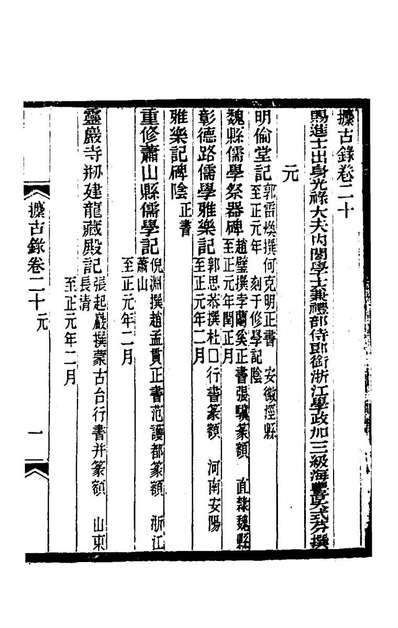 攈古錄卷二十
賜進士出身光祿大夫內閣學士兼禮部侍郎銜浙江學政加三級海豐吳式芬撰
元
明倫堂記 郭雷煥撰 何克明正書 安徽涇縣
至正元年 刻于修學記陰
魏縣儒學祭器碑 趙璧撰 李蘭奚正書 張驥篆額 直隸魏縣
至正元年閏五月
彰德路儒學雅樂記 郭思恭撰 杜囗行書 篆額 河南安陽
至正元年二月
雅樂記碑陰 正書
重修蕭山縣儒學記 倪淵撰 趙孟貫正書 范護都篆額 浙江
蕭山 至正元年二月
靈巖寺刱建龍藏殿記 張起巖撰 蒙古台行書并篆額 山東
長清 至正元年二月
攈古錄卷二十 元 一